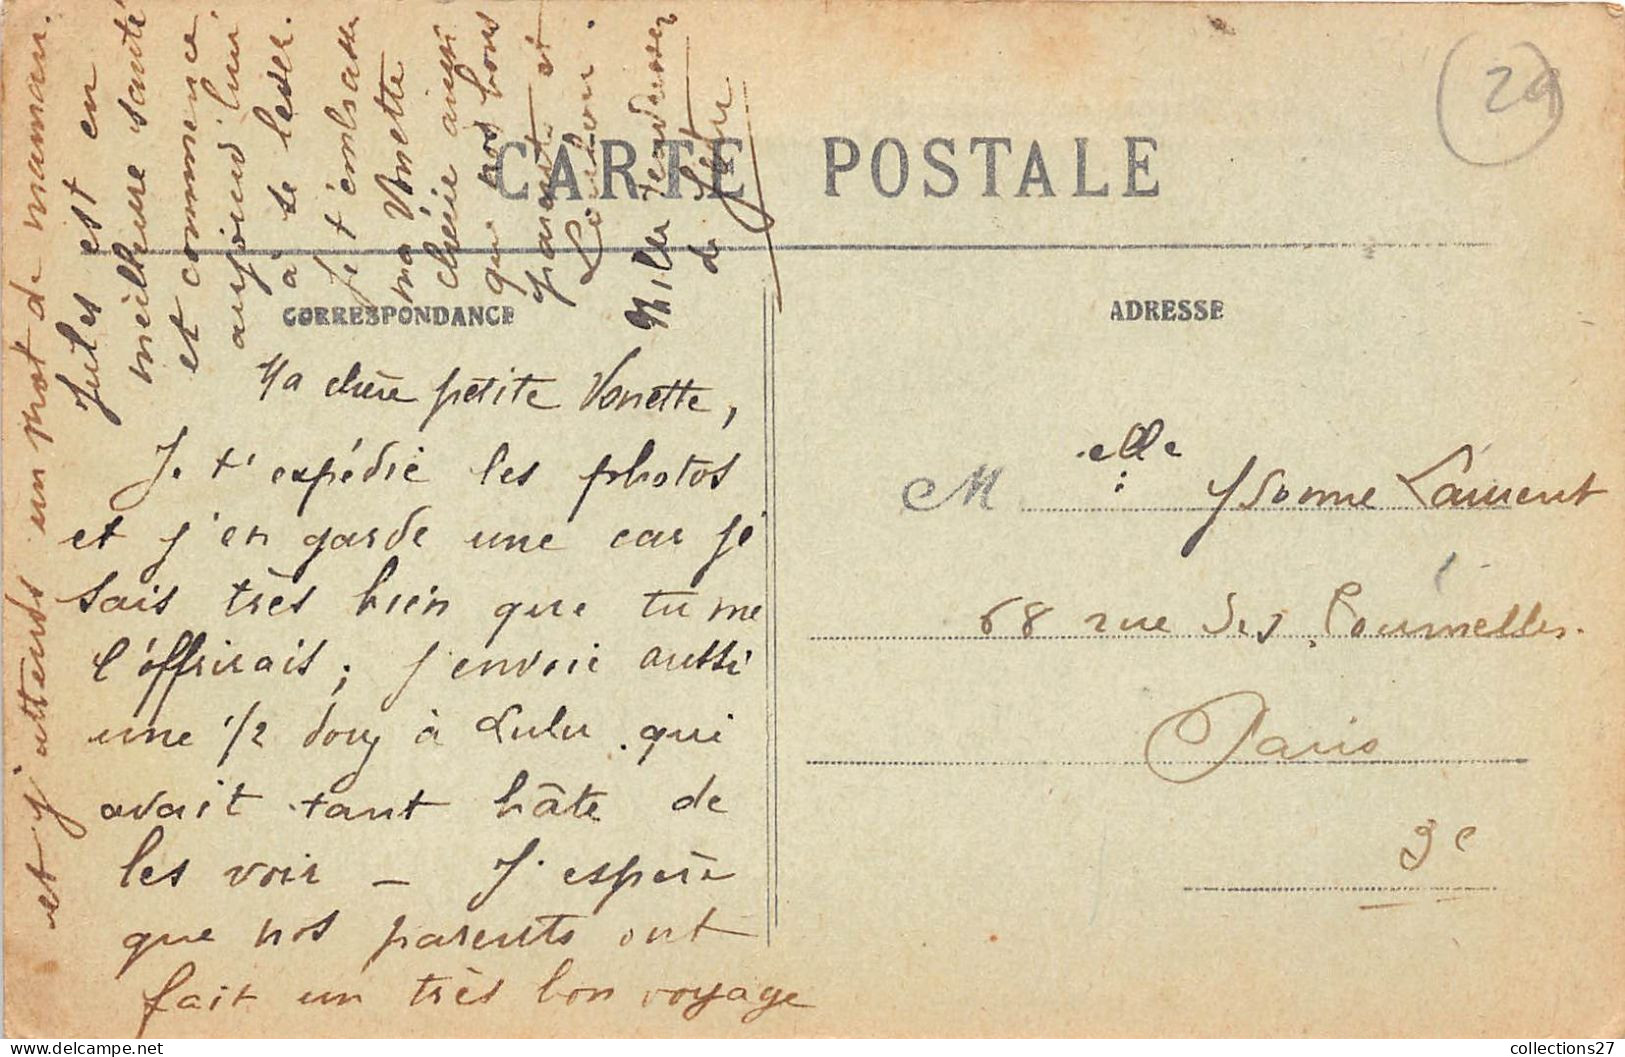 CARTE POSTALE
29
CORRESPONDANCE
ADRESSE
Ma chère petite Vonette,
Je t'expédie les photos
et j'en garde une car je
sais très bien que tu me
l'offrirais ; j'envoie aussi
une 1/2 douz à Lulu qui
avait tant hâte de
les voir — J'espère
que nos parents ont
fait un très bon voyage
et j'attends un mot de maman.
Jules est en
meilleure santé
et commence
aujourd'hui
à se lever.
Je t'embrasse
ma Vonette
chérie ainsi
que nos bons
parents et
Mille tendresses
de
Melle Yvonne Laurent
68 rue des Tournelles.
Paris
3e
collections27